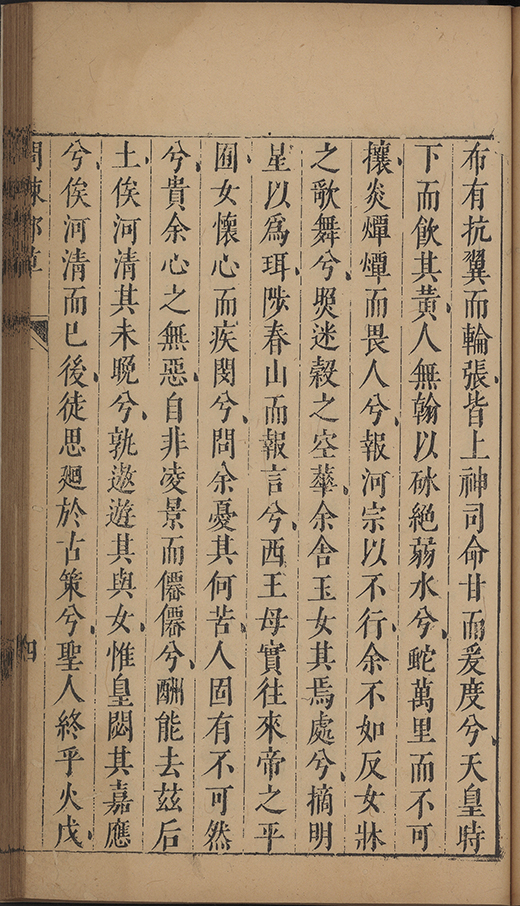 布有抗翼而輪張皆上神司命甘而爰度兮天皇時
下而飲其黃人無翰以砅絕弱水兮蛇萬里而不可
攘炎燀燀而畏人兮報河宗以不行余不如反女牀
之歌舞兮迷穀之空華余舍玉女其焉處兮摘明
星以爲珥陟春山而報言兮西王母實往來帝之平
圃女懷心而疾閔兮問余憂其何苦人固有不可然
兮貴余心之無惡自非凌景而僊僊兮酬能去茲后
土俟河清其未晚兮孰遨遊其與女惟皇閟其嘉應
兮俟河清而已後徒思廻於古策兮聖人終乎火戊
四